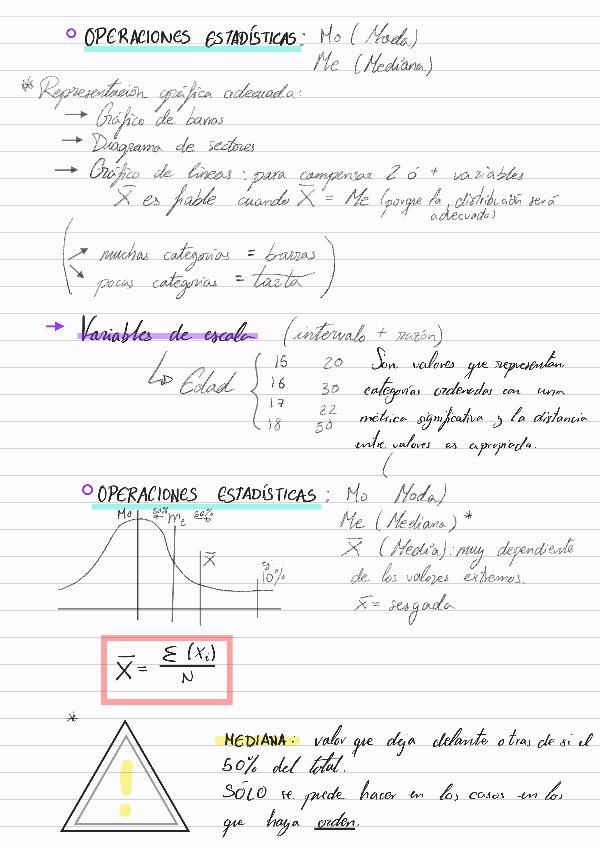 OPERACIONES ESTADÍSTICAS: Mo (Moda)
Me (Mediana)
* Representación gráfica adecuada:
→ Gráfico de barras
→ Diagrama de sectores
→ Gráfico de líneas: para compensar 2 ó + variables
X̄ es fiable cuando X̄ = Me (porque la distribución será
adecuada)
muchas categorías = barras
pocas categorías = tarta
→ Variables de escala (intervalo + razón)
Edad
15 20
16 30
17 22
18 50
Son valores que representan
categorías ordenadas con una
métrica significativa y la distancia
entre valores es apropiada.
(
OPERACIONES ESTADÍSTICAS: Mo Moda)
Me (Mediana) *
X̄ (Media): muy dependiente
de los valores extremos.
X̄ = sesgada
Mo 50% 50%
X̄
10%
X̄ = Σ (Xi) / N
*
!
MEDIANA: valor que deja delante otras de si el
50% del total.
SÓLO se puede hacer en los casos en los
que haya orden.